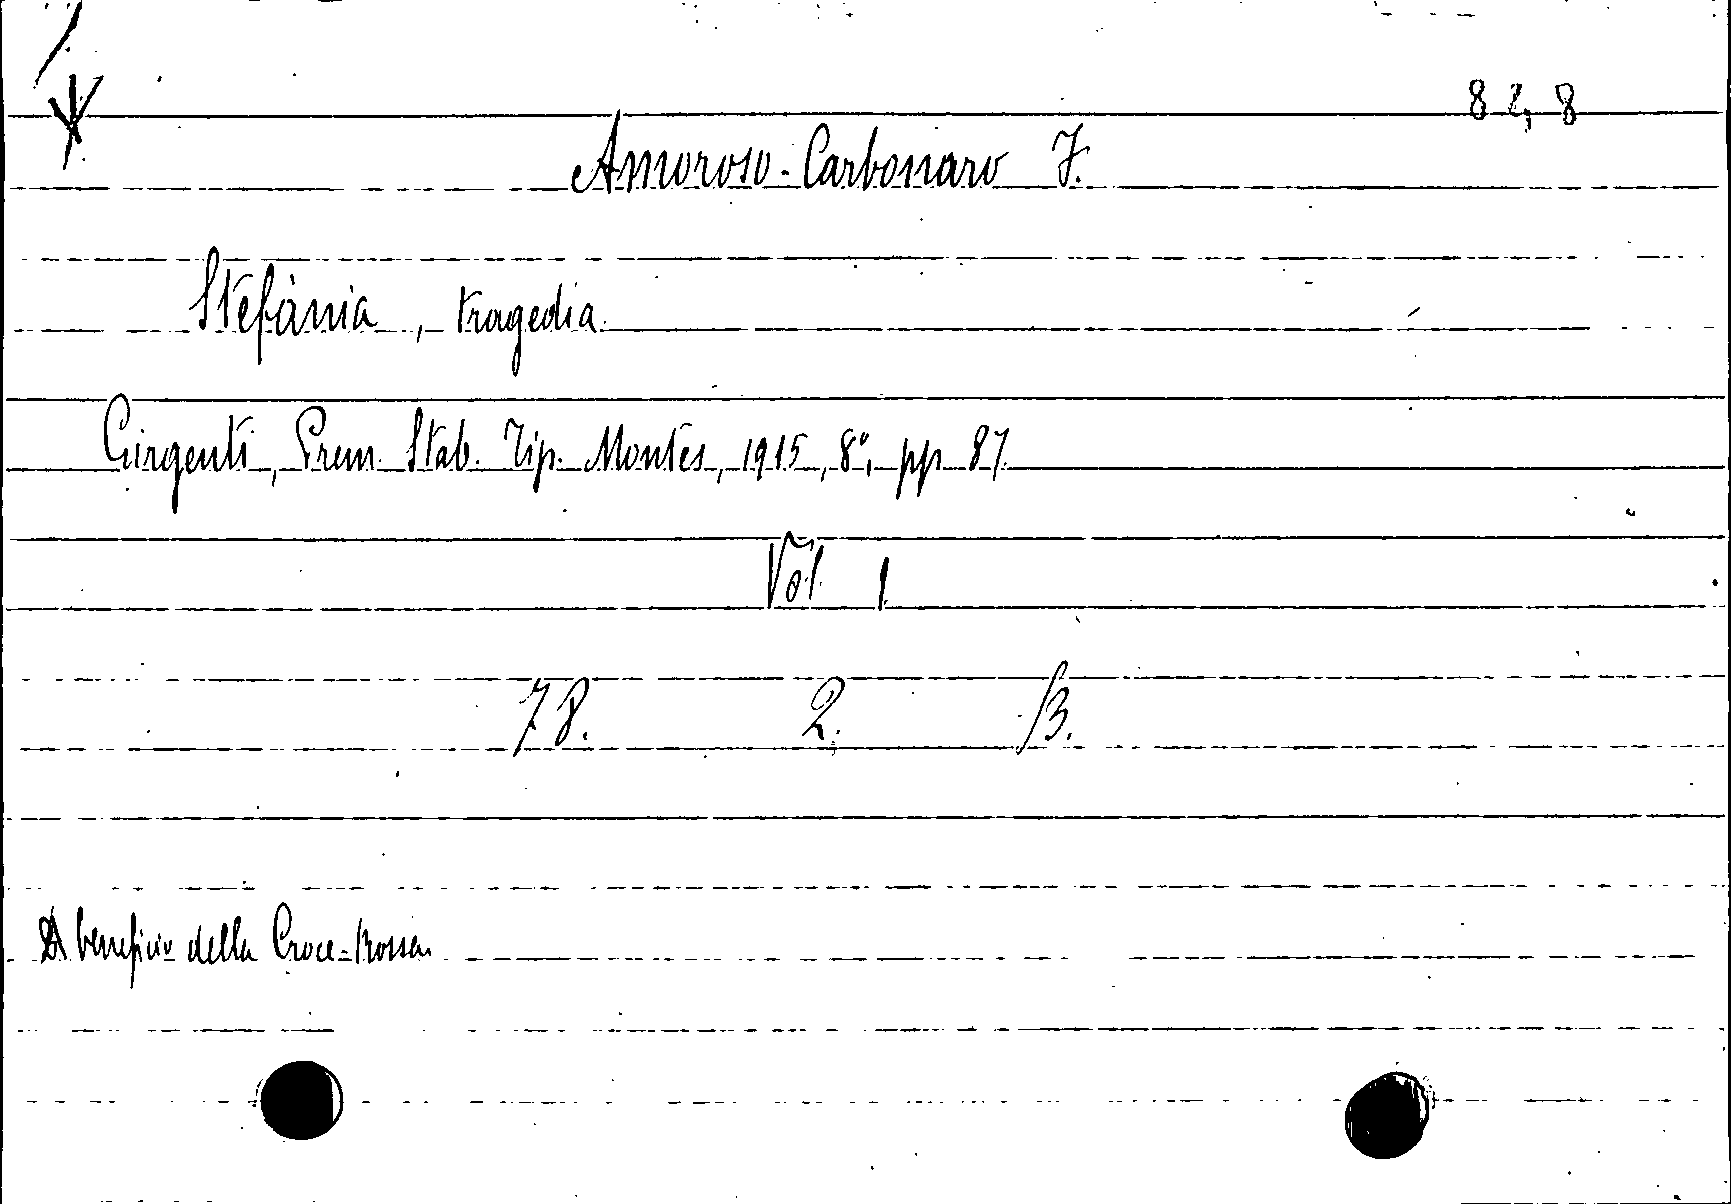 82,8
Amoroso-Carbonaro F.
Stefània, tragedia
Girgenti, Prem. Stab. Tip. Montes, 1915, 8°, pp 87
Vol. 1
78. 2. B.
A beneficio della Croce=Rossa